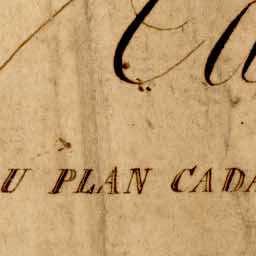 U PLAN CADA